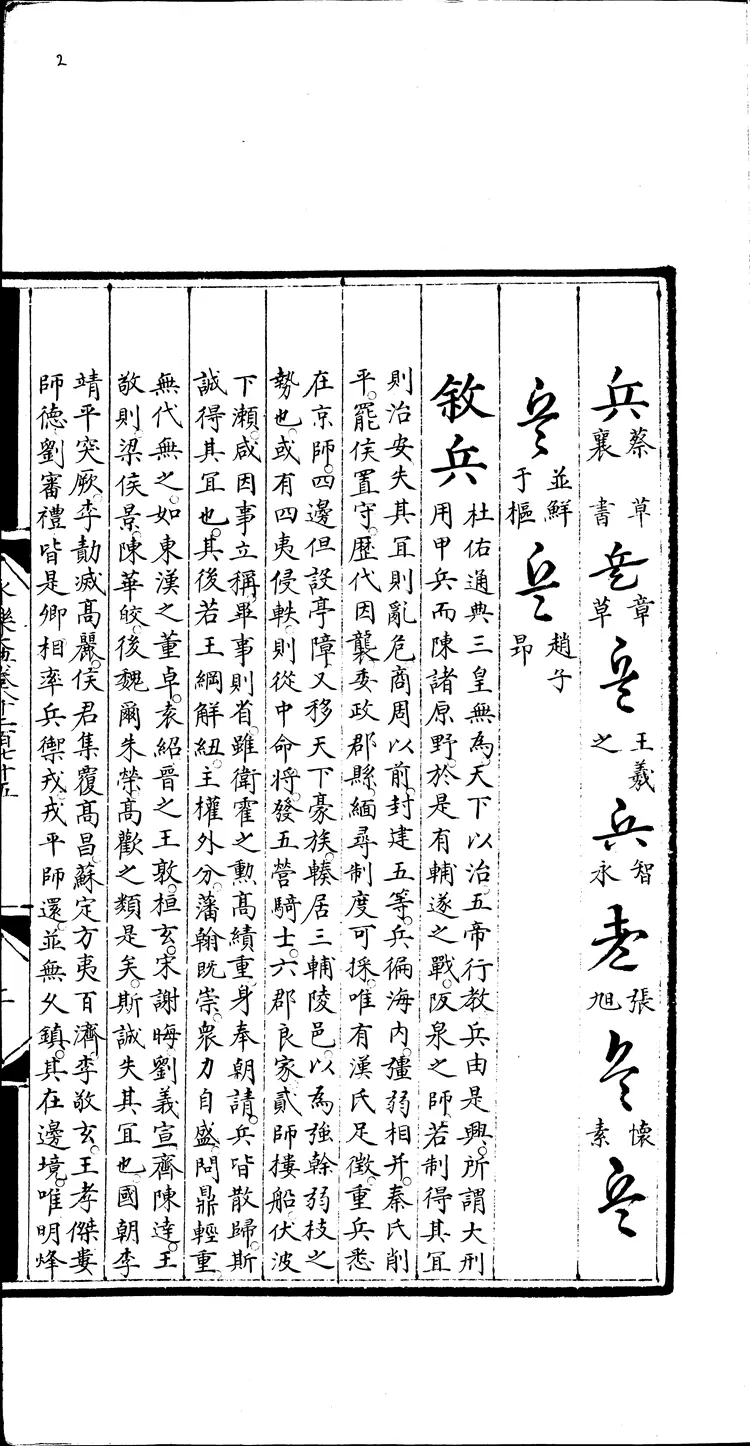 兵蔡襄草書兵章草兵王羲之兵智永兵張旭兵懷素兵
並鮮于樞兵趙子昂
敘兵
杜佑通典三皇無為天下以治五帝行教兵由是興所謂大刑
用甲兵而陳諸原野於是有輔遂之戰阪泉之師若制得其冝
則治安失其冝則亂危商周以前封建五等兵徧海內彊弱相并秦氏削
平罷侯置守歷代因襲委政郡縣緬尋制度可採唯有漢氏足徵重兵悉
在京師四邊但設亭障又移天下豪族輳居三輔陵邑以為強幹弱枝之
勢也或有四夷侵軼則從中命將發五營騎士六郡良家貳師樓船伏波
下瀨咸因事立稱畢事則省雖衛霍之勳髙績重身奉朝請兵皆散歸斯
誠得其冝也其後若王綱解紐主權外分藩翰既崇衆力自盛問鼎輕重
無代無之如東漢之董卓袁紹晉之王敦桓玄宋謝晦劉義宣齊陳達王
敬則梁侯景陳華皎後魏爾朱榮髙歡之類是矣斯誠失其冝也國朝李
靖平突厥李勣滅髙麗侯君集覆髙昌蘇定方夷百濟李敬玄王孝傑婁
師德劉審禮皆是卿相率兵禦戎戎平師還並無久鎮其在邊境唯明烽
2